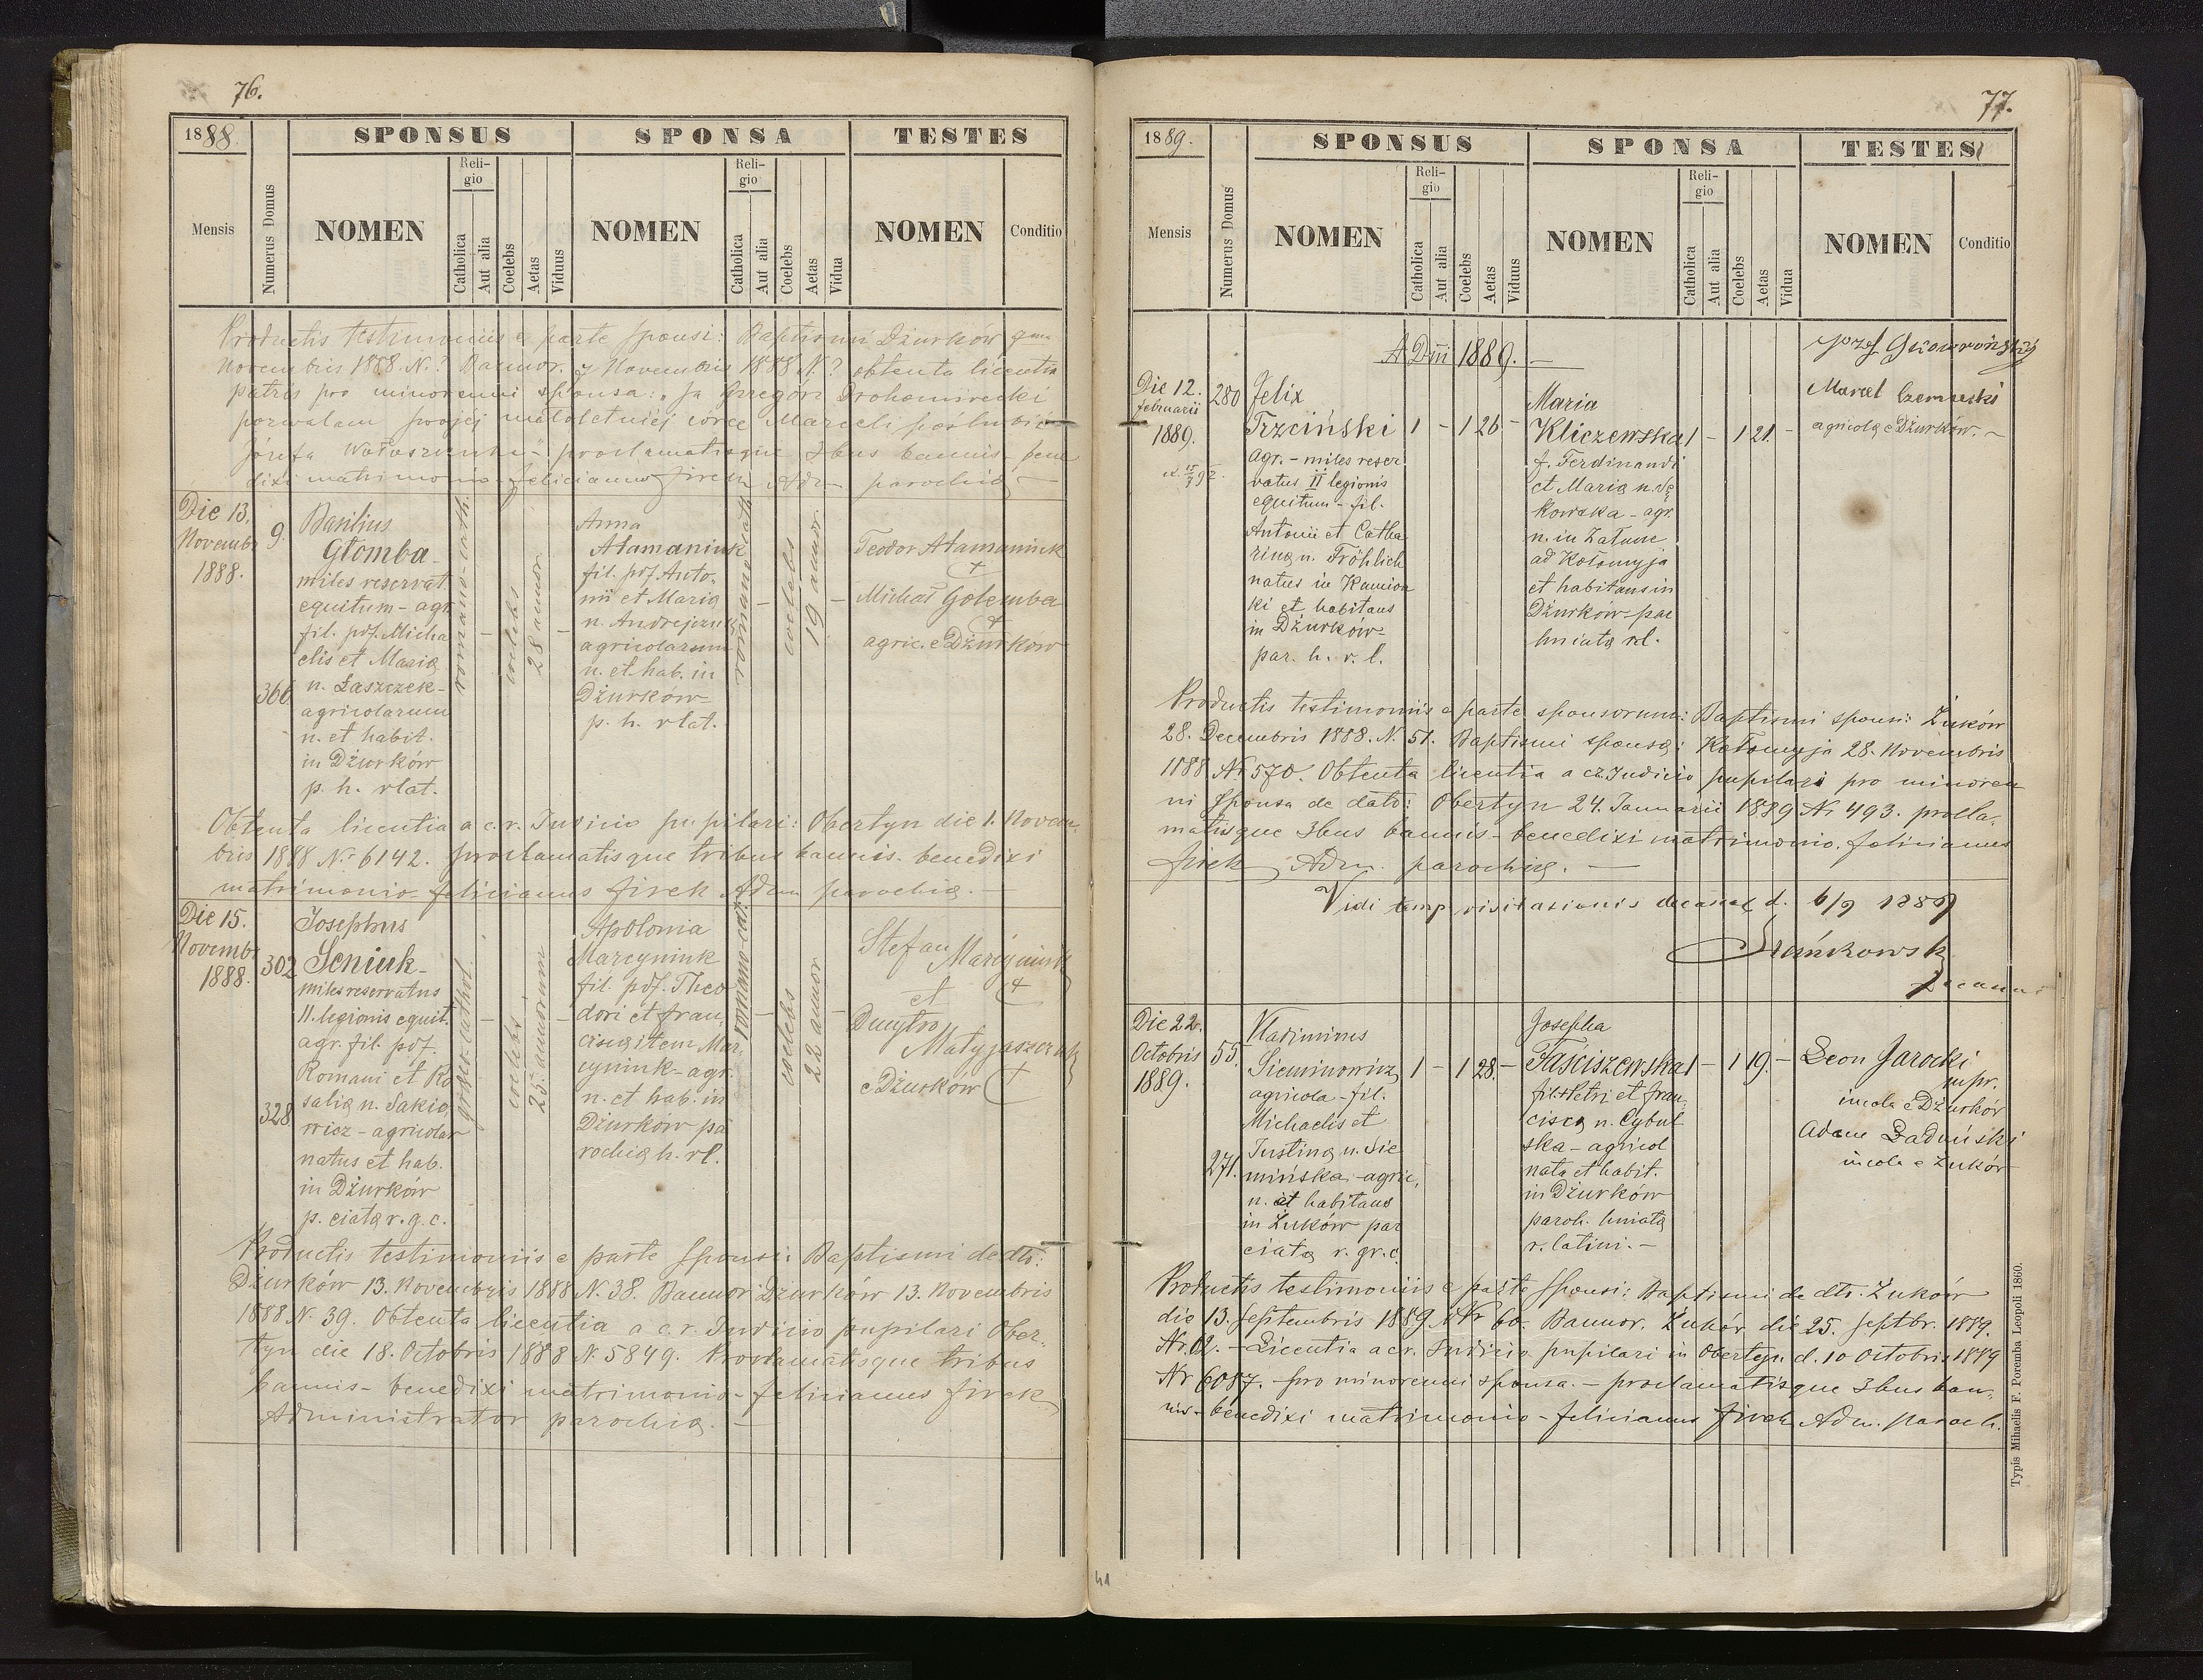 76.
1888.
SPONSUS
SPONSA
TESTES
Mensis
Numerus Domus
NOMEN
Religio
Catholica
Aut alia
Coelebs
Aetas
Viduus
NOMEN
Religio
Catholica
Aut alia
Coelebs
Aetas
Vidua
NOMEN
Conditio
Productis testimoniis e parte sponsi: Baptismi Dżurków
Novembris 1888. N.? Bannor. Novembris 1888 N.? obtenta licentia
patris pro minorenni sponsa: „Ja Grzegórz Drohomirecki
pozwalam swojej małoletniéj córce Marceli poślubić
Józefa proclamatisque 3bus bannis bene
dixi matrimonio felicianus firek Adm parochią
Die 13.
Novembr
1888.
9.
366
Basilius
Głomba
miles reservat.
equitum - agr
fil. pdf. Micha
elis et Marią
n. Łaszczek -
agricolarum
n. et habit.
in Dżurków
p. h. rlat.
romano-cath.
-
coelebs
28 annor
-
Anna
Atamaniuk
fil. pdf Anto,
nii et Marią
n. Andrejczuk
agricolarum
n. et hab. in
Dżurków
p. h. rlat.
romano cath
-
coelebs
19 annor.
-
Teodor Atamaniuk
+
Michał Gołemba
+
agric. e Dżurkow
Obtenta licentia a c. r. Judicio pupilari: Obertyn die 1. Novem,
bris 1888 N. 6142. proclamatisque tribus bannis. benedixi
matrimonio felicianus firek Adm parochią. -
Die 15.
Novembr
1888.
302
328
Josephus
Seniuk -
miles reservatus
II. legionis equit.
agr. fil. pdf.
Romani et Ro
salią n. Sakio,
wicz - agricolar
natus et hab.
in Dżurków
p. eiatą r. g. c.
graeco cathol.
-
coelebs
25. annorum
-
Apolonia
Marcyniuk
fil. pdf. Theo
dori et fran,
ciscą item Mar,
cyniuk - agr.
n. et hab. in
Dżurków pa
rochią h. rl.
romano-cat.
-
coelebs
22 annor
-
Stefan Marcyniuk
et +
Dmytro
Matyjaszczuk
e Dżurków +
Productis testimoniis e parte sponsi: Baptismi de dto:
Dżurków 13. Novembris 1888 N. 38. Bannor Dżurków 13. Novembris
1888 N. 39. Obtenta licentia a c. r. Judicio pupilari Ober,
tyn die 18. Octobris 1888 N. 5849. Proclamatisque tribus
bannis - benedixi matrimonio - felicianus firek
Administrator parochią. -
77.
1889.
SPONSUS
SPONSA
TESTES
Mensis
Numerus Domus
NOMEN
Religio
Catholica
Aut alia
Coelebs
Aetas
Viduus
NOMEN
Religio
Catholica
Aut alia
Coelebs
Aetas
Vidua
NOMEN
Conditio
A Dni 1889. -
Die 12.
februarii
1889.
280
Felix
Trzciński
agr. - miles reser
vatus II legionis
equitum - fil.
Antonii et Catha
riną n. Fröhlich
natus in Kamion
ki et habitans
in Dżurków -
par. h. r. l.
1 - 1 26 -
Maria
Kliczewska
f. Ferdinandi
et Marią n. Sę
kowska - agr.
n. in Zatune
ad Kołomyja
et habitans in
Dżurków par
hniatą rl.
1 - 1 21. -
Józef Skowroński
Marcel Czerneski
agricolą e Dżurków. -
Productis testimoniis e parte sponsorum: Baptismi sponsi: Żuków
28. Decembris 1888. N. 51. Baptismi sponsą: Kołomyja 28. Novembris
1888 Nr 570. Obtenta licentia a cr. Judicio pupilari pro minoren
ni sponsa de dato: Obertyn 24. Januarii 1889 Nr 493. procla,
matisque 3bus bannis - benedixi matrimonio. felicianus
firek Adm. parochią. -
Vidi temp visitationis decanal d. 6/9 1889
Decanus
Die 22.
Octobris
1889.
55.
271.
Vladimirus
Sieminowicz
agricola - fil.
Michaelis et
Justiną n. Sie
mińska - agric,
n. et habitans
in Żuków par
eiatą r. gr. c.
1 - 1 28. -
Josepha
Taściszewska
fil. Petri et fran,
ciscą n. Cybul
ska - agricol
nata et habit.
in Dżurków
paroh. hniatą
r. latini. -
1 - 1 19. -
Leon Jarocki
mpr.
incola e Dżurków
Adam Ładuński
incola e Żuków
Productis testimoniis e parte sponsi: Baptismi de dto. Żuków
die 13. Septembris 1889 Nr 60. Bannor. Żuków die 25. septbr. 1889.
Nr. 62. - Licentia a cr. Judicio pupilari in Obertyn d. 10 Octobris 1889
Nr 6087. - pro minorenni sponsa. - proclamatisque 3bus ban,
nis - benedixi matrimonio - felicianus firek Adm. paroch.
Typis Mihaelis F. Poremba Leopoli 1860.
41